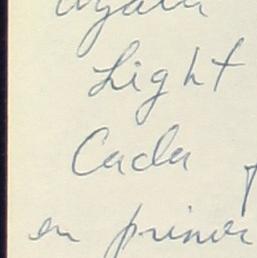 Light
Cada
en primer